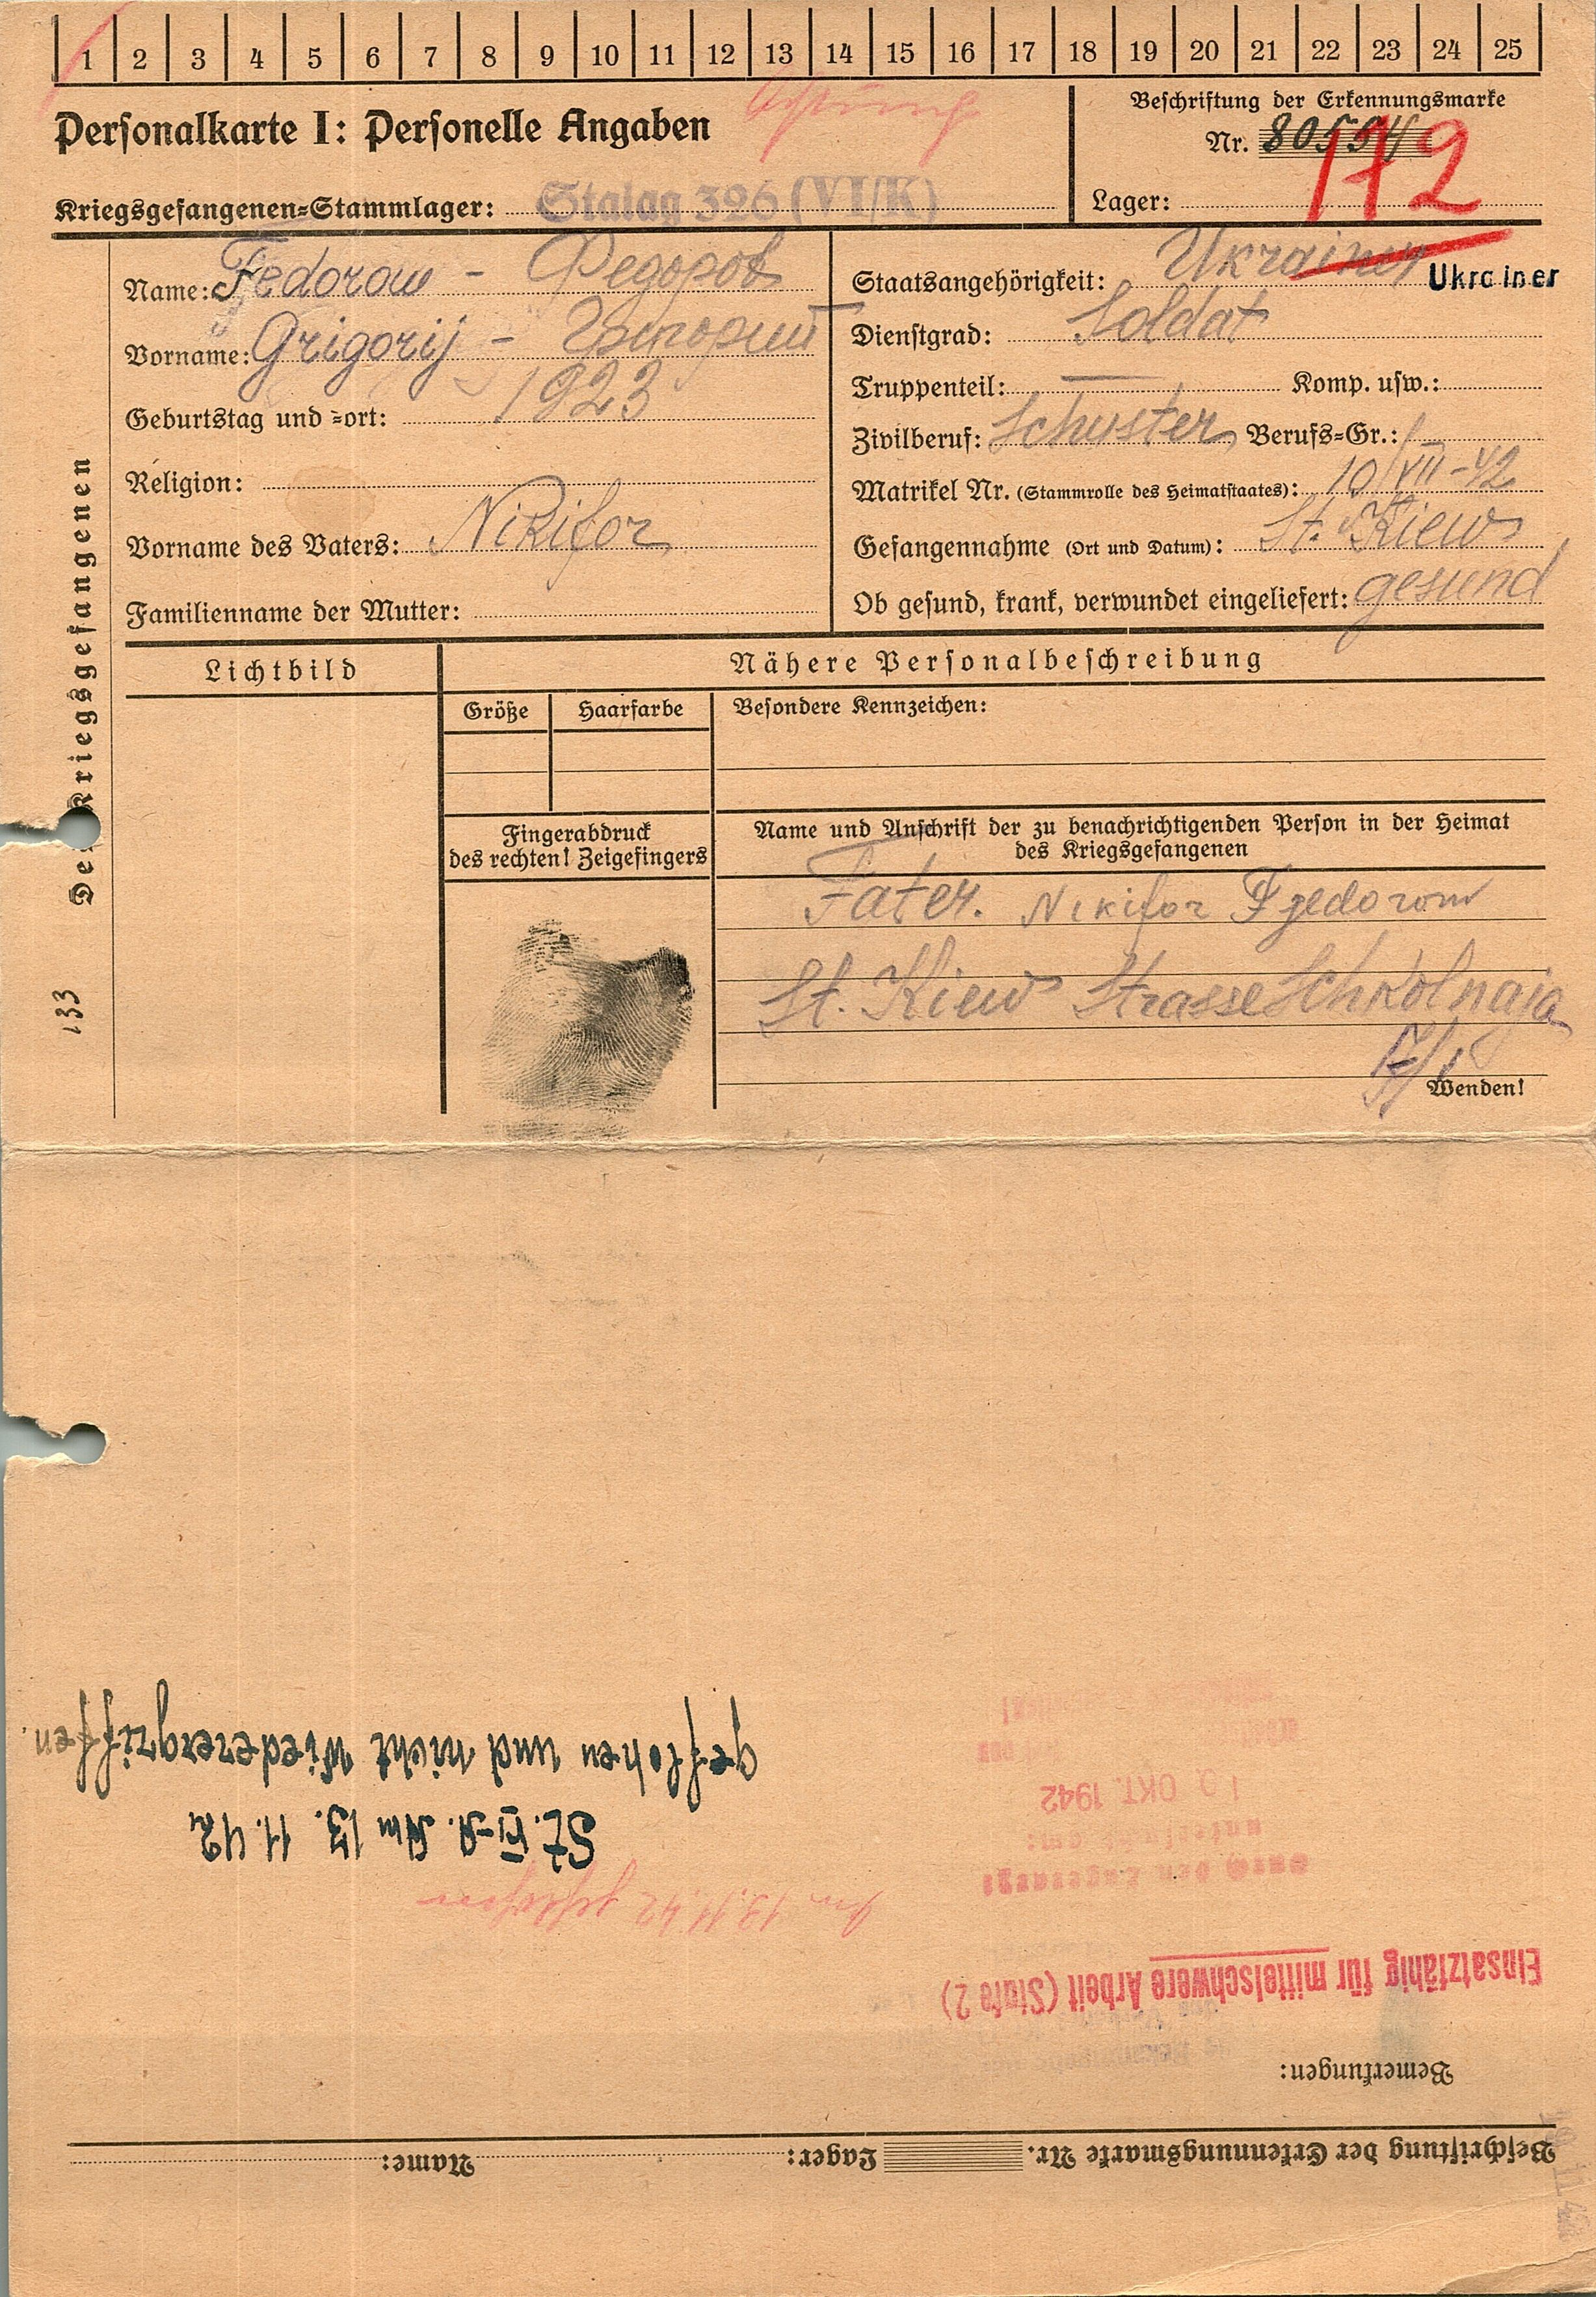 1 2 3 4 5 6 7 8 9 10 11 12 13 14 15 16 17 18 19 20 21 22 23 24 25
Personalkarte I: Personelle Angaben
Beschriftung der Erkennungsmarke
Nr. 80554
172
Kriegsgefangenen=Stammlager: Stalag 326 (VI/K)
Lager:
Des Kriegsgefangenen
133
Name: Fedorow - Федоров
Vorname: Grigorij - Григорий
Geburtstag und =ort: 1923
Religion:
Vorname des Vaters: Nikifor
Familienname der Mutter:
Staatsangehörigkeit: Ukrainer Ukrainer
Dienstgrad: Soldat
Truppenteil: — Komp. usw.:
Zivilberuf: Schuster Berufs=Gr.:
Matrikel Nr. (Stammrolle des Heimatstaates): 10/VII-42
Gefangennahme (Ort und Datum): St. Kiew
Ob gesund, krank, verwundet eingeliefert: gesund
Lichtbild
Nähere Personalbeschreibung
Größe Haarfarbe Besondere Kennzeichen:
Fingerabdruck
des rechten! Zeigefingers
Name und Anschrift der zu benachrichtigenden Person in der Heimat
des Kriegsgefangenen
Fater. Nikifor Fjedorow
St. Kiew Strasse Schkolnaja
Wenden!
Beschriftung der Erkennungsmarke Nr. Lager: Name:
Bemerkungen:
Einsatzfähig für mittelschwere Arbeit (Stufe 2)
durch den Lagerarzt
untersucht am:
10 OKT. 1942
Am 13.11.42 geflohen
St. VI-A. Am 13. 11. 42
geflohen und nicht wiederergriffen.